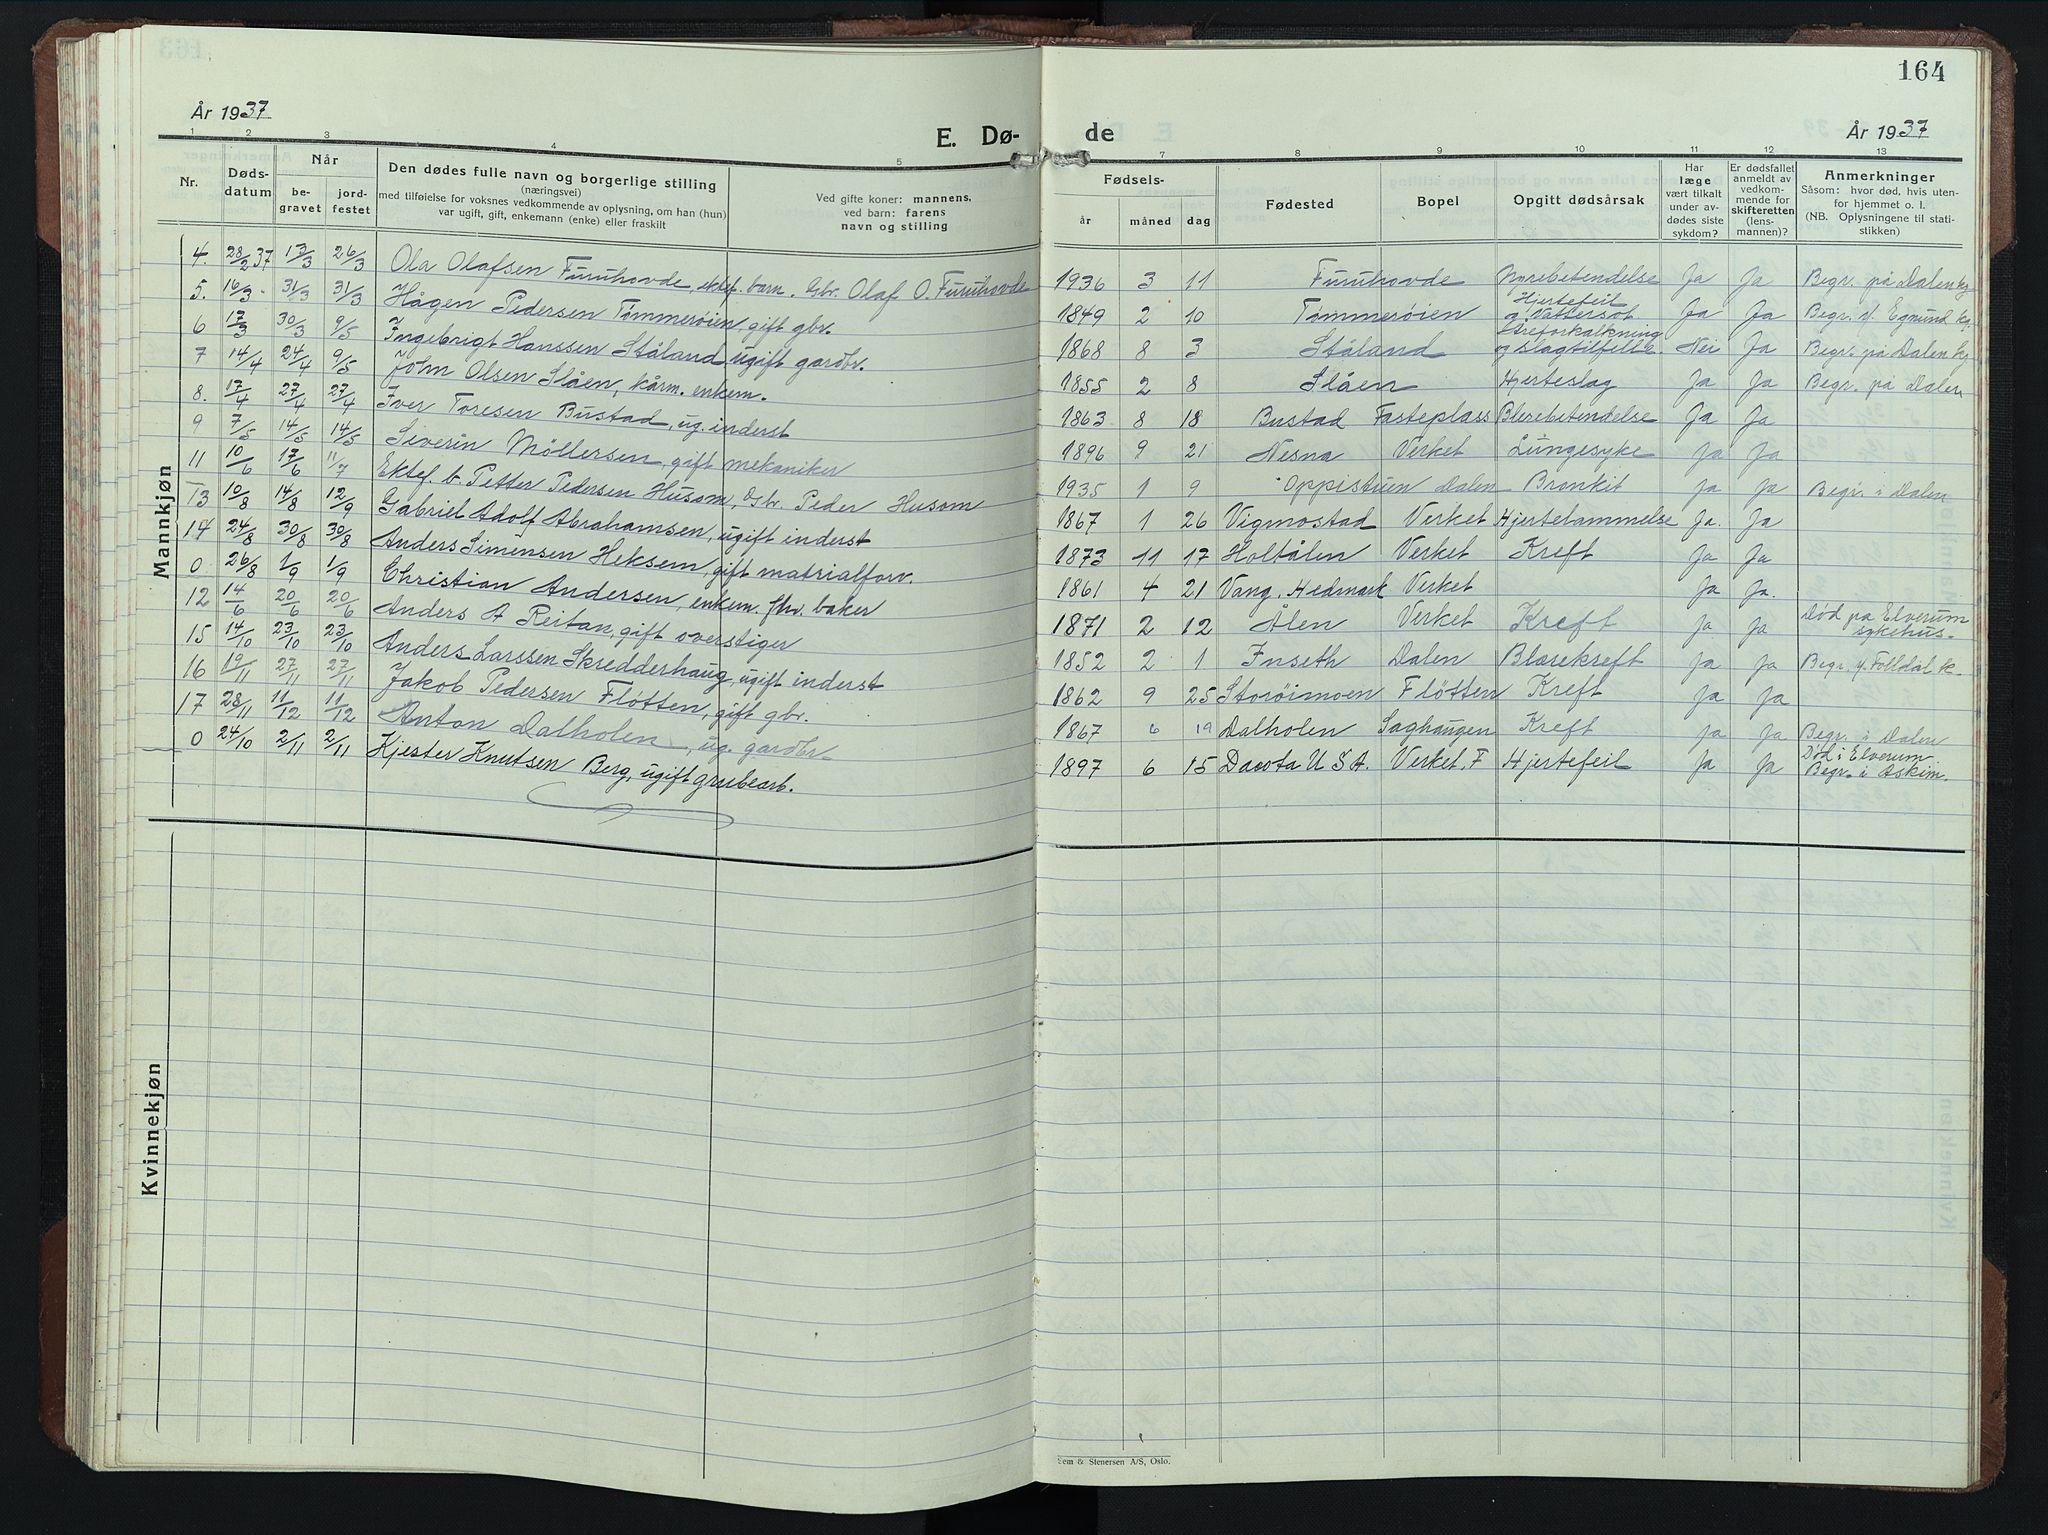 164
År 1937
E. Døde
År 1937
1 2 3 4 5 7 8 9 10 11 12 13
Nr.
Dødsdatum
Når
begravet
jordfestet
Den dødes fulle navn og borgerlige stilling
(næringsvei)
med tilføielse for voksnes vedkommende av oplysning, om han (hun)
var ugift, gift, enkemann (enke) eller fraskilt
Ved gifte koner: mannens,
ved barn: farens
navn og stilling
Fødsels-
år måned dag
Fødested
Bopel
Opgitt dødsårsak
Har
læge
vært tilkalt
under avdødes siste
sykdom?
Er dødsfallet
anmeldt av
vedkommende for
skifteretten
(lensmannen)?
Anmerkninger
Såsom: hvor død, hvis utenfor hjemmet o. l.
(NB. Oplysningene til statistikken)
Mannkjøn
4. 28/2 37 13/3 26/3 Ola Olafsen Furuhovde, ektef. barn. Gbr. Olaf O. Furuhovde 1936 3 11 Furuhovde Nyrebetendelse Ja Ja Begr. på Dalen kg
5. 16/3 31/3 31/3 Hågen Pedersen Tømmerøien, gift gbr. 1849 2 10 Tømmerøien Hjertefeil og Vattersot Ja Ja Begr. v. Egnund kg.
6 17/3 30/3 9/5 Ingebrigt Hanssen Ståland ugift gardbr. 1868 8 3 Ståland Åreforkalkning og slagtilfelle Nei Ja Begr. på Dalen kg
7 14/4 24/4 9/5 John Olsen Slåen, kårm. enkem. 1855 2 8 Slåen Hjerteslag Ja Ja Begr. på Dalen
8. 17/4 27/4 27/4 Iver Toresen Bustad, ug. inderst 1863 8 18 Bustad Fasteplass Blærebetendelse Ja Ja
9 7/5 14/5 14/5 Siverin Möllersen, gift mekaniker 1896 9 21 Nesna Verket Lungesyke Ja Ja
11 10/6 17/6 11/7 Ektef. b. Petter Pedersen Husom, Gbr. Peder Husom 1935 1 9 Oppistuen Dalen Bronkit Ja Ja Begr. i Dalen
13 10/8 14/8 12/9 Gabriel Adolf Abrahamsen, ugift inderst 1867 1 26 Vigmostad Verket Hjertelammelse Ja. Ja
14 24/8 30/8 30/8 Anders Simensen Heksem, gift matrialforv. 1873 11 17 Holtålen Verket Kreft Ja Ja
0 26/8 1/9 1/9 Christian Andersen, enkem. fhv. baker 1861 4 21 Vang, Hedmark Verket Ja Ja.
12 14/6 20/6 20/6 Anders A Reitan, gift overstiger 1871 2 12 Ålen Verket Kreft Ja Ja Død på Elverum sykehus.
15 14/10 23/10 23/10 Anders Larssen Skredderhaug, ugift inderst 1852 2 1 Inseth Dalen Blærekreft Ja Ja Begr. v. Folldal k.
16 19/11 27/11 27/11 Jakob Pedersen Fløtten, gift gbr. 1862 9 25 Storöimoen Flötten Kreft Ja Ja
17 28/11 11/12 11/12 Anton Dalholen, ug. gardbr 1867 6 19 Dalholen Saghaugen Kreft Ja Ja Begr. i Dalen
0 24/10 2/11 2/11 Kjester Knutsen Berg, ugift grubearb. 1897 6 15 Dacota U S A. Verket. F Hjertefeil Ja Ja Død i Elverum. Begr. i Askim.
Kvinnekjøn
Sem & Stenersen A/S, Oslo.